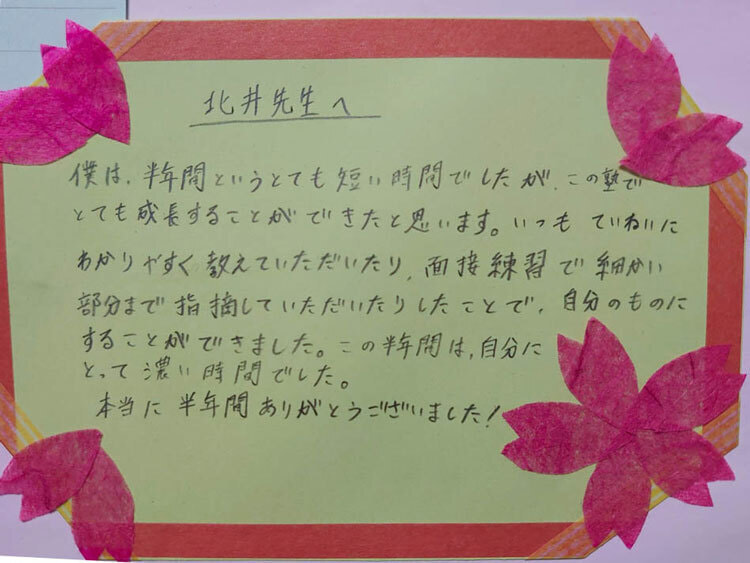 北井先生へ
僕は、半年間というとても短い時間でしたが、この塾で
とても成長することができたと思います。いつもていねいに
わかりやすく教えていただいたり、面接練習で細かい
部分まで指摘していただいたりしたことで、自分のものに
することができました。この半年間は、自分に
とって濃い時間でした。
本当に半年間ありがとうございました!